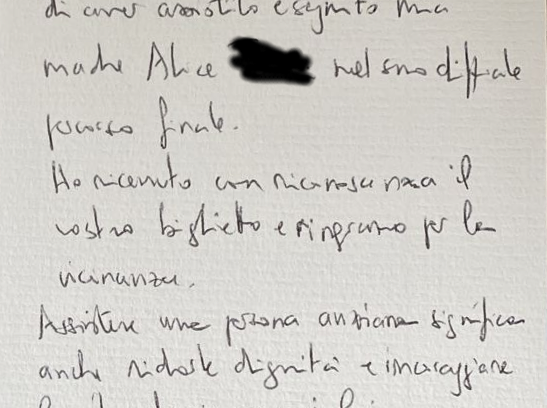 di aver assistito e seguito mia
madre Alice nel suo difficile
percorso finale.
Ho ricevuto con riconoscenza il
vostro biglietto e ringraziamo per la
vicinanza.
Assistere una persona anziana significa
anche ridarle dignità e incoraggiare